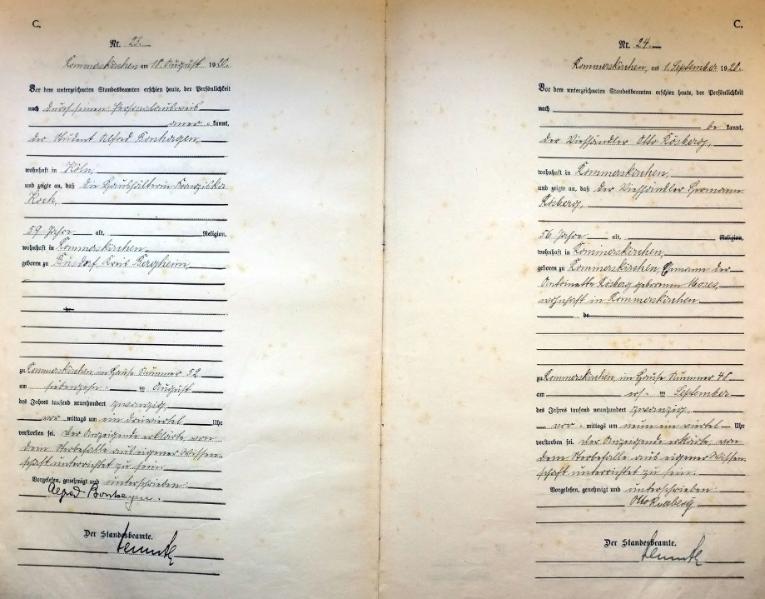 C.
Nr. 23.
Rommerskirchen am 18. August 1920.
Vor dem unterzeichneten Standesbeamten erschien heute, der Persönlichkeit
nach durch seinen Personalausweis
aner kannt,
der Student Alfred Bonhagen,
wohnhaft in Köln,
und zeigte an, daß die Haushälterin Franziska
Koch,
59 Jahre alt, Religion,
wohnhaft in Rommerskirchen,
geboren zu Kreis Bergheim,
zu Rommerskirchen im Hause Nummer 52
am siebenzehn ten August
des Jahres tausend neunhundert zwanzig
vor mittags um ein dreiviertel Uhr
verstorben sei. Der Anzeigende erklärte, von
dem Sterbefalle aus eigener Wissen-
schaft unterrichtet zu sein.
Vorgelesen, genehmigt und unterschrieben
Alfred Bonhagen.
Der Standesbeamte.
C.
Nr. 24.
Rommerskirchen, am 1. September 1920.
Vor dem unterzeichneten Standesbeamten erschien heute, der Persönlichkeit
nach
be kannt,
der Viehhändler Otto Kösberg,
wohnhaft in Rommerskirchen,
und zeigte an, daß der Viehhändler Hermann
Kösberg,
56 Jahre alt, Religion,
wohnhaft in Rommerskirchen,
geboren zu Rommerskirchen, Ehemann der
Antoinette Kösberg geborenen Moses,
wohnhaft in Rommerskirchen
zu Rommerskirchen im Hause Nummer 48
am ers ten September
des Jahres tausend neunhundert zwanzig
vor mittags um neun ein viertel Uhr
verstorben sei. Der Anzeigende erklärte, von
dem Sterbefalle aus eigener Wissen-
schaft unterrichtet zu sein.
Vorgelesen, genehmigt und unterschrieben
Otto Kösberg
Der Standesbeamte.